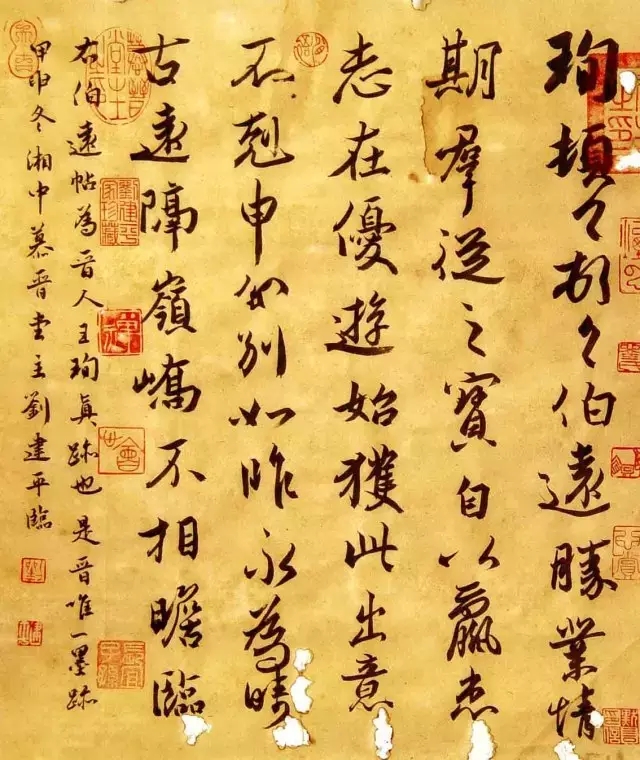 珣頓々首々伯遠勝業情
期羣從之寶自以羸患
志在優遊始獲此出意
不剋申分別如昨永為疇
古遠隔嶺嶠不相瞻臨
右伯遠帖為晋人王珣眞跡也是晋唯一墨跡
甲申冬湘中慕晋堂主劉建平臨
劉建平家珍藏